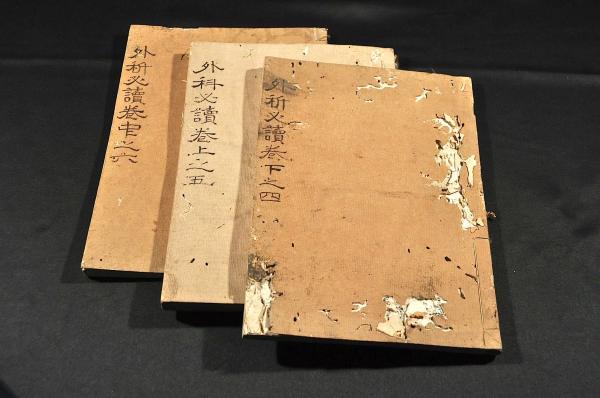 外科必讀卷中之六
外科必讀卷上之五
外科必讀卷下之四